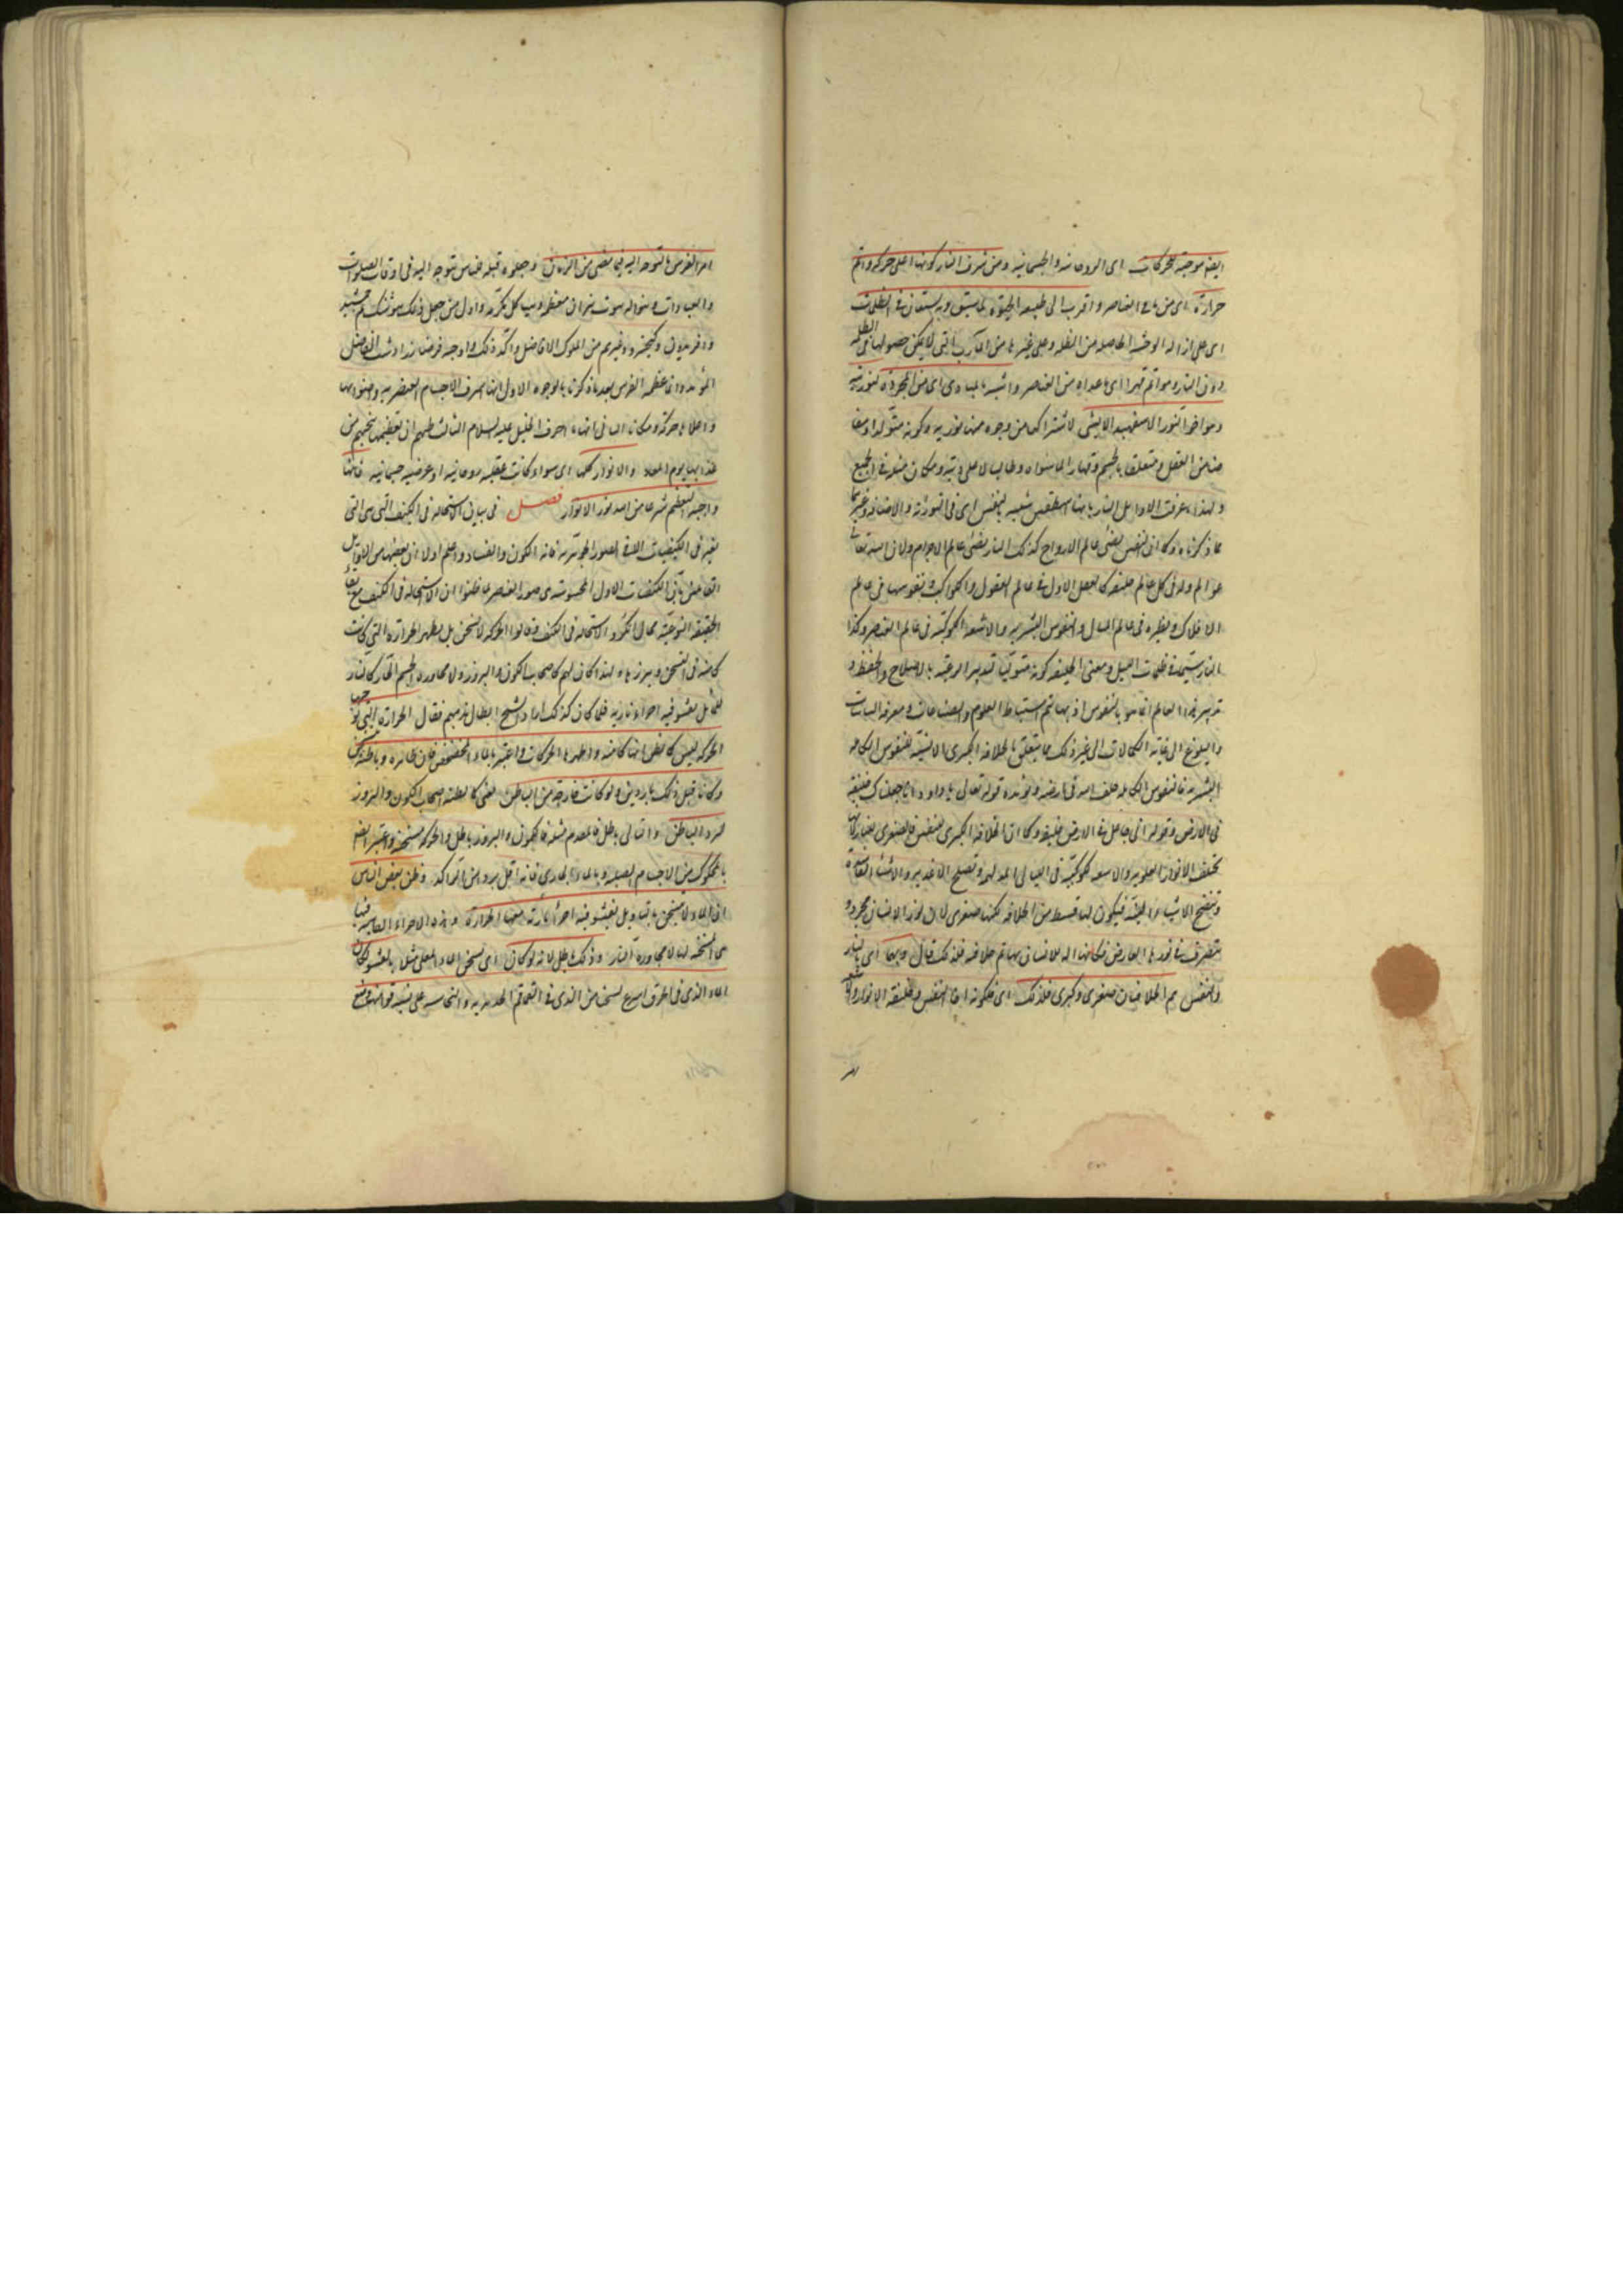 ايضا موجبة للحركات اى الروحانية والجسمانية ومن شرف النار كونها اعلى حركة واتم
حرارة اى من باقى العناصر واقرب الى طبيعة الحيوة كما سبق وبه يستعان فى الظلمات
اى على ازالة الوحشة الحاصلة من الظلمة وعلى غيرها من المآرب التى لا يمكن حصولها فى الظلمة
دون النار وهو اتم قهرا اى ما عداه من العناصر واشبه بالمبادى اى من المجردة لنوريته
وهو اخو النور الاسفهبد الانسى لاشتراكهما من وجوه منها نوريه وكونه متولدا ومعا
ضا من العقل ومتعلقا بالجسم وقهارا لما سواه وطالبا لاعلى رتبة ومكان منه فى الجميع
ولهذا عرفت الاوايل النار بانها اسطقس شبيه بالنفس اى فى النورية والاضائة وغيرهما
مما ذكرناه وكما ان النفس يضئ عالم الارواح كذلك النار يضئ عالم الاجرام ولان لله تعالى
عوالم وله فى كل عالم خليفة كالعقل الاول فى عالم العقول والكواكب ونفوسها فى عالم
الافلاك ونظيره فى عالم المثال والنفوس البشرية والاشعة الكوكبية فى عالم العناصر وكذا
النار سيما فى ظلمات الليل ومعنى الخليفة كونه متوليا لتدبير الرعية بالاصلاح والحفظ و
تدبير هذا العالم انما هو بالنفوس اذ بها تتم استنباط العلوم والصناعات ومعرفة السياسات
والبلوغ الى غاية الكمالات الى غير ذلك مما يتعلق بالخلافة الكبرى الانسية للنفوس الكاملة
البشرية فالنفوس الكاملة خلفاء الله فى ارضه ويؤيده قوله تعالى يا داود انا جعلناك خليفة
فى الارض وقوله انى جاعل فى الارض خليفة وكما ان الخلافة الكبرى للنفس فالصغرى للنار لانها
تخلف الانوار العلوية والاشعة الكوكبية فى الليالى المدلهمة وتصلح الاغذية والاشياء الفاسدة
وتنضج الاشياء النيئة فيكون لها قسط من الخلافة لكنها صغرى لان نور الانسان مجرد و
يتصرف فى نورها العارض فكانها آلة للانسان بها تتم خلافته فلذلك قال وبهما اى بالنار
والنفس يتم الخلافتان صغرى وكبرى فلذلك اى فلكونه اخا النفس وخليفة الانوار
امر الفرس بالتوجه اليه فيما مضى من الزمان وجعلوه قبلة للناس يتوجه اليه فى اوقات الصلوات
والعبادات وبنوا له بيوت نيران معظمة وهياكل مكرمة واول من جعل ذلك هوشنك ثم جمشيد
وافريدون وكيخسرو وغيرهم من الملوك الافاضل واكد ذلك واوجبه فرضا زرادشت الفاضل
المؤيد وانما عظمه الفرس بعد ما ذكرنا بالوجوه الاول انها اشرف الاجسام العنصرية واضوءها
واعلاها حركة ومكانا الثانى انها ما احرقت الخليل عليه السلام الثالث ظنهم ان تعظيمها ينجيهم من
عذابها يوم المعاد والانوار كلها اى سواء كانت عقلية روحانية او عرضية جسمانية فانها
واجبة التعظيم شرعا من الله نور الانوار فصل فى بيان الاستحالة فى الكيف التى هى التى
تغير فى الكيفيات لا فى الصور الجوهرية فانه الكون والفساد واعلم اولا ان بعضهم من الاوايل
القائلين بان الكيفيات الاول المحسوسة هى صور العناصر ما ظنوا ان الاستحالة فى الكيف مع بقاء
الحقيقة النوعية محال انكروا الاستحالة فى الكيف فقالوا الحركة لا تسخن بل يظهر الحرارة التى كانت
كامنة فى المتسخن وتبرزها ولهذا كان لهم كاصحاب الكمون والبروز ولا مجاورة الجسم الحار كالنار
للماء بل يفشو فيه اجزاء نارية فلما كان كذلك اراد الشيخ ابطال مذهبهم فقال الحرارة التى توجبها
الحركة ليس كما يظن انها كامنة واظهرها الحركات واعتبر بالماء المخضخض فان ظاهره وباطنه يسخن
وكانا قبل ذلك باردين ولو كانت خارجة من الباطن يعنى كما يظنه اصحاب الكمون والبروز
لبرد الباطن والتالى باطل فالمقدم مثله فالكمون والبروز باطل والحركة مسخنة واعتبر ايضا
بالمحكوك من الاجسام الصلبة وبالماء الجارى فانه اقل بردا من الراكد وظن بعض الناس
ان الماء لا يتسخن بالنار بل يفشو فيه اجزاء نارية معها الحرارة وهذه الاجزاء الفاشية فيها
هى المسخنة لها لا مجاورة النار وذلك باطل لانه لو كان اى تسخن الماء المغلى مثلا بالفشو لكان
الماء الذى فى الخزف اسرع تسخنا من الذى فى القماقم الحديدية والنحاسية على نسبة قوامهما ومنع